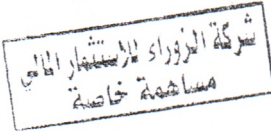 شركة الزوراء للاستثمار المالي
مساهمة خاصة